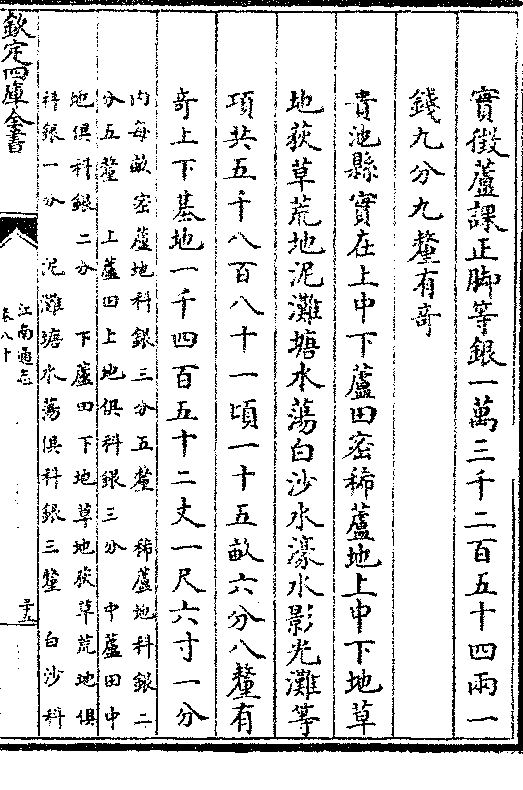 實徵蘆課正脚等銀一萬三千二百五十四兩一
錢九分九釐有奇
貴池縣實在上中下蘆田密稀蘆地上中下地草
地荻草荒地泥灘塘水蕩白沙水濠水影光灘等
項共五千八百八十一頃一十五畝六分八釐有
奇上下基地一千四百五十二丈一尺六寸一分
內每畝密蘆地科銀三分五釐 稀蘆地科銀二
分五釐 上蘆田上地俱科銀三分 中蘆田中
地俱科銀二分 下蘆田下地草地荻草荒地俱
科銀一分 泥灘塘水蕩俱科銀三釐 白沙科
欽定四庫全書
江南通志
卷八十
二十五